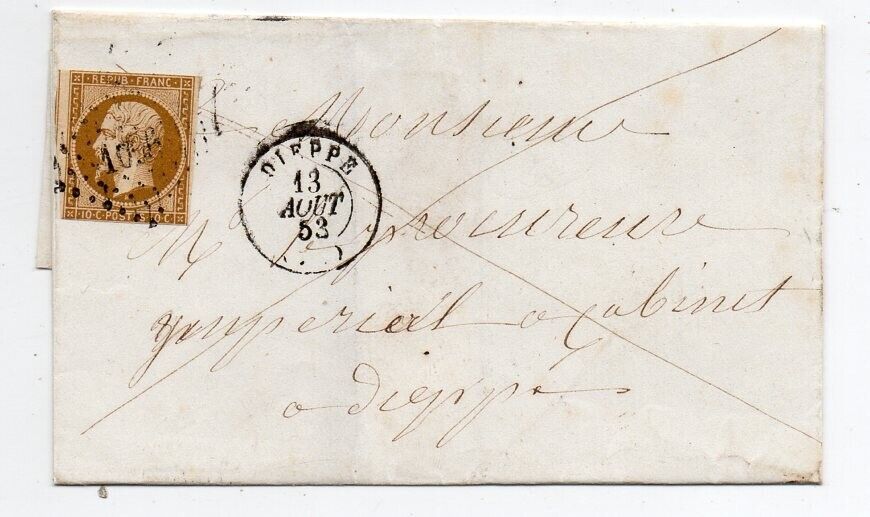 REPUB·FRANC·
10·C·POSTES·10·C·
DIEPPE
13
AOUT
53
a Monsieur
Mr le procureur
ymperial a Cabinet
a dieppe